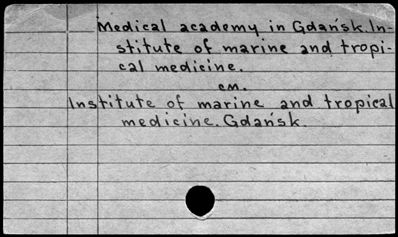 Medical academy in Gdańsk. In-
stitute of marine and tropi-
cal medicine.
см.
Institute of marine and tropical
medicine. Gdańsk.